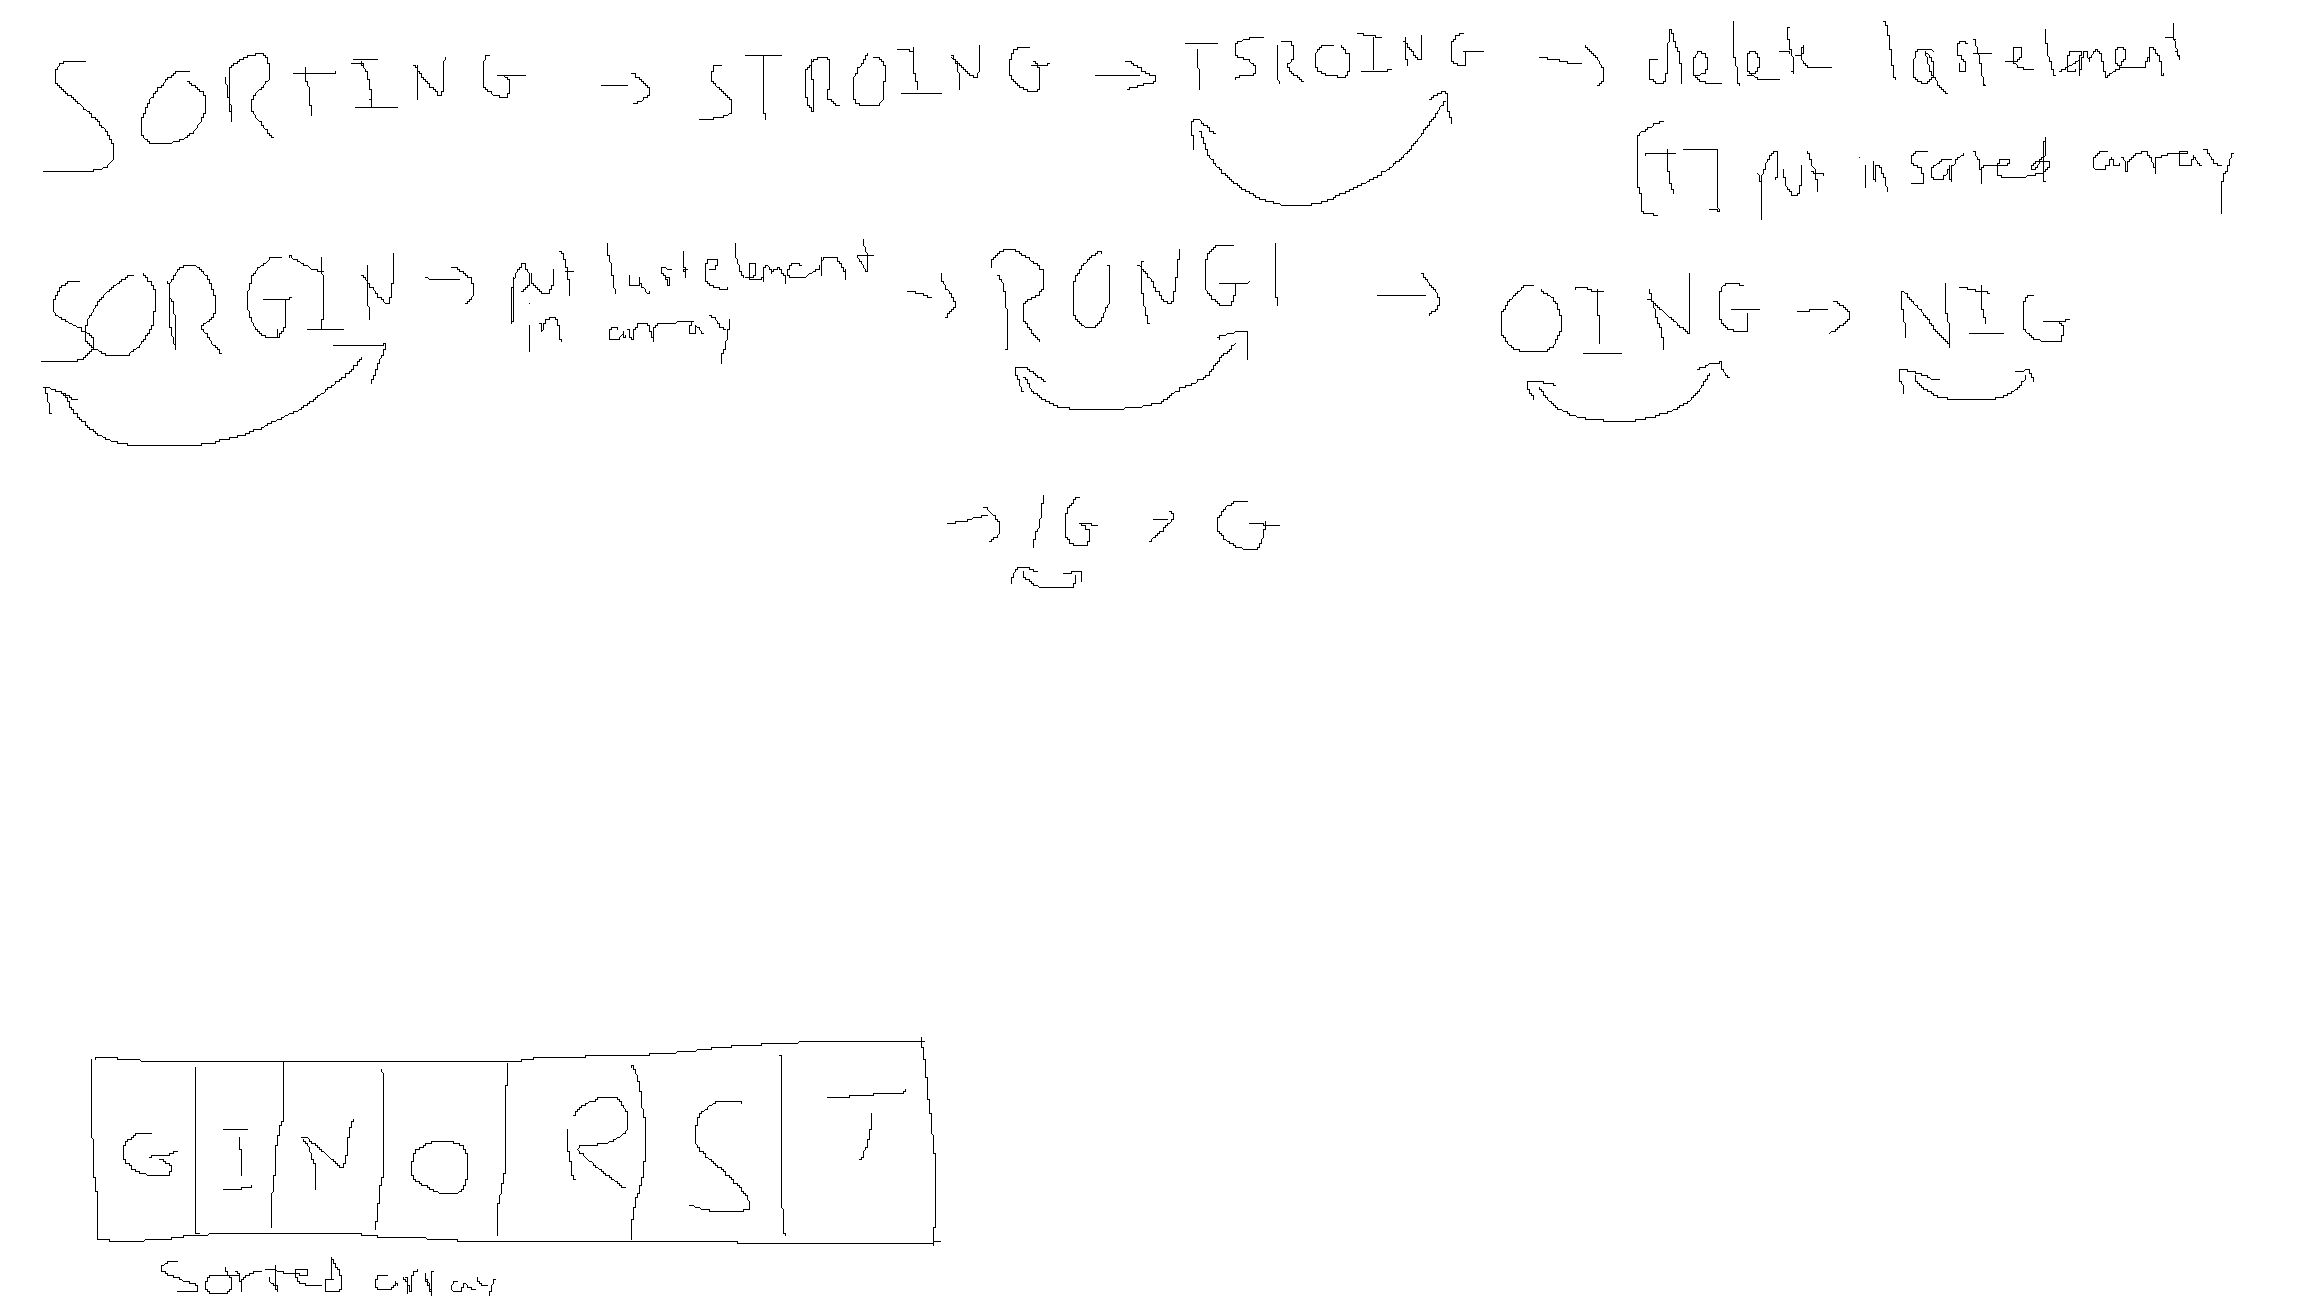 SORTING → STROING → TSROING → delete last element
[T] put in sorted array
SORGIN → put last element in array → RONGI → OING → NIG
→ IG > G
G I N O R S T
Sorted array